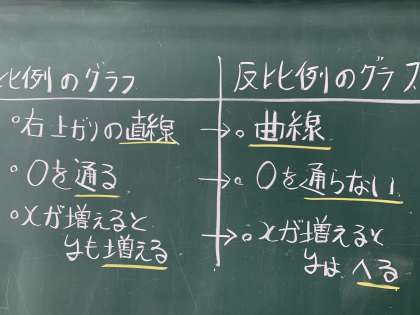 比例のグラフ
反比例のグラフ
°右上がりの直線
→ 。曲線
°0を通る
→ 。0を通らない
°xが増えると
yも増える
→ 。xが増えると
yはへる